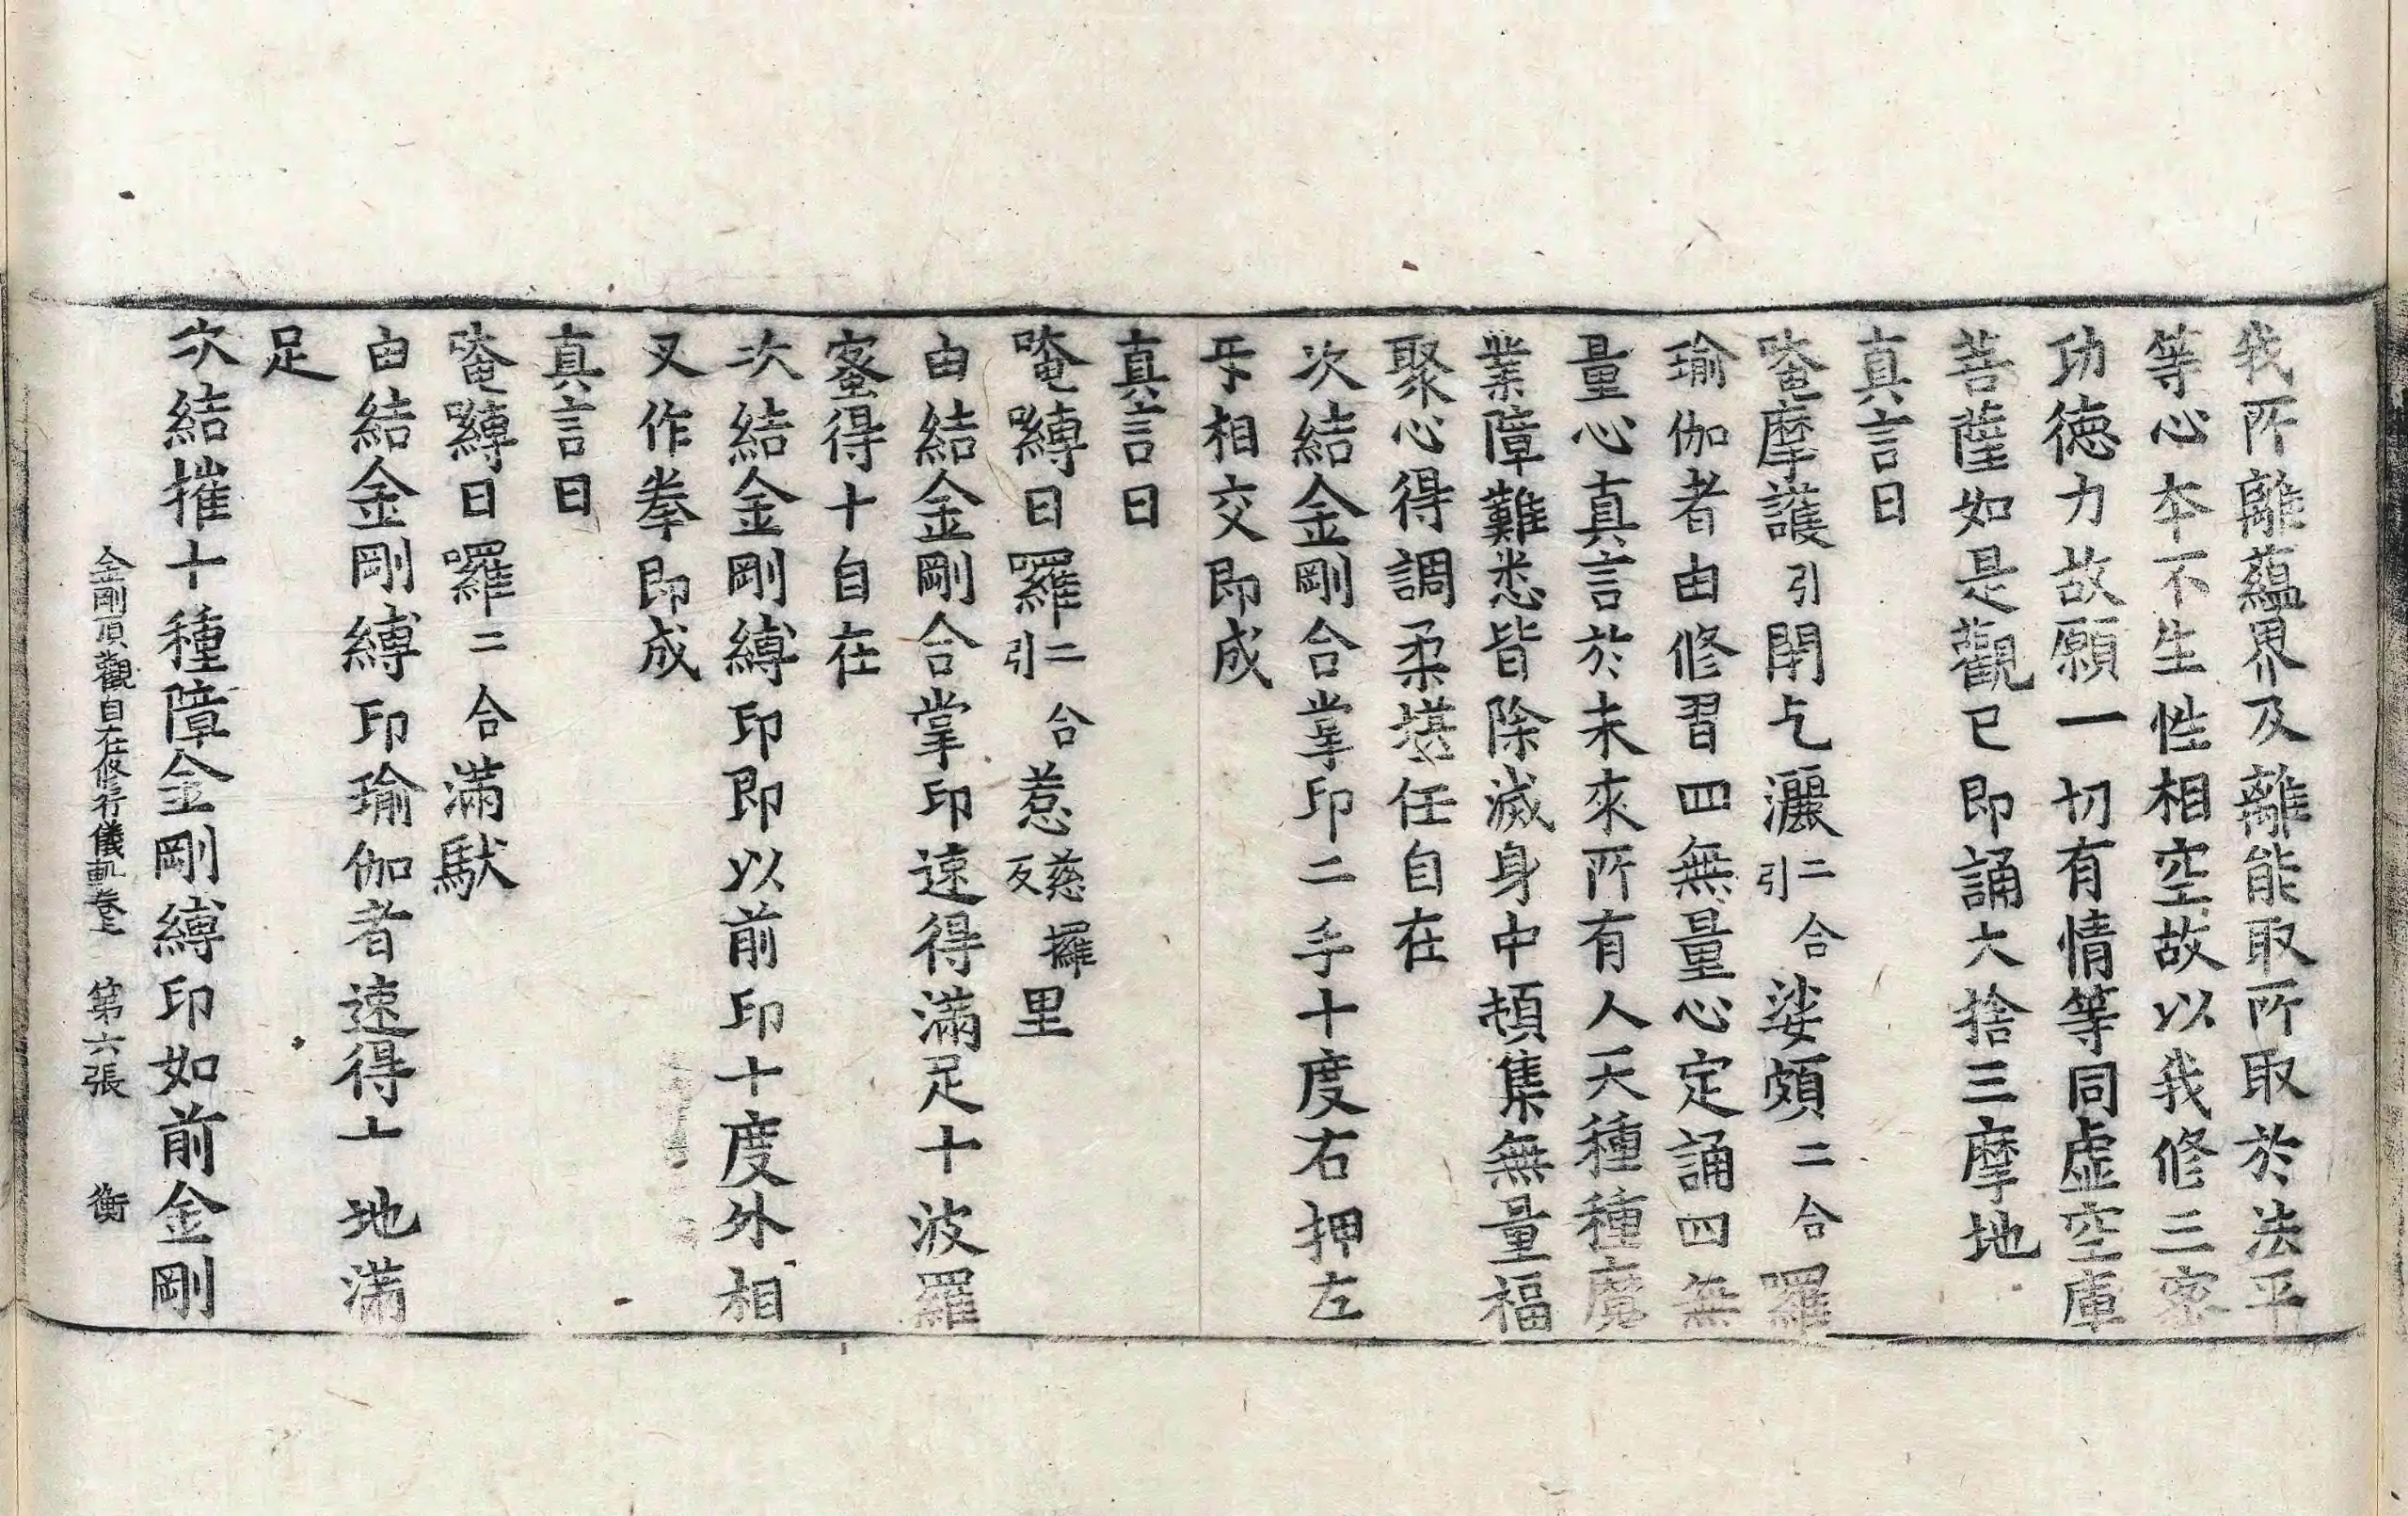 我所離蘊界及離能取所取於法平
等心本不生性相空故以我修三密
功徳力故願一切有情等同虛空庫
菩薩如是觀已即誦大捨三摩地
真言曰
唵摩護引閉乞灑二合引娑頗二合羅
瑜伽者由修習四無量心定誦四無
量心真言於未來所有人天種種魔
業障難悉皆除滅身中頓集無量福
聚心得調柔堪任自在
次結金剛合掌印二手十度右押左
㸦相交即成
真言曰
唵嚩日囉二合引惹慈攞反里
由結金剛合掌印速得滿足十波羅
蜜得十自在
次結金剛縛印即以前印十度外相
叉作拳即成
真言曰
唵嚩日囉二合滿馱
由結金剛縛印瑜伽者速得十地滿
足
次結摧十種障金剛縛印如前金剛
金剛頂觀自在修行儀軌卷上 第六張 衡